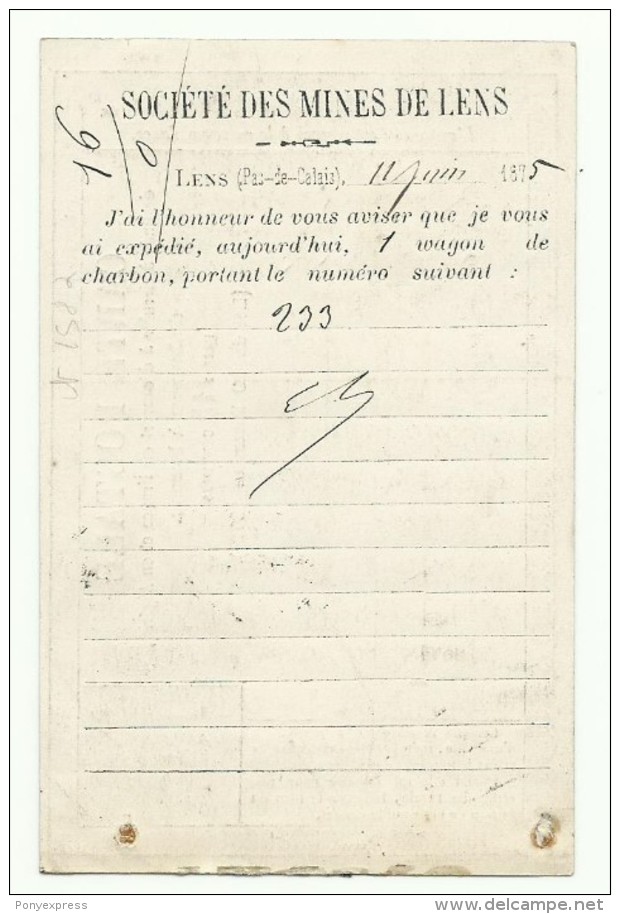 16
0
SOCIÉTÉ DES MINES DE LENS
LENS (Pas-de-Calais), 11 Juin 1875
J'ai l'honneur de vous aviser que je vous
ai expédié, aujourd'hui, 1 wagon de
charbon, portant le numéro suivant :
233
Ponyexpress
delcampe.net